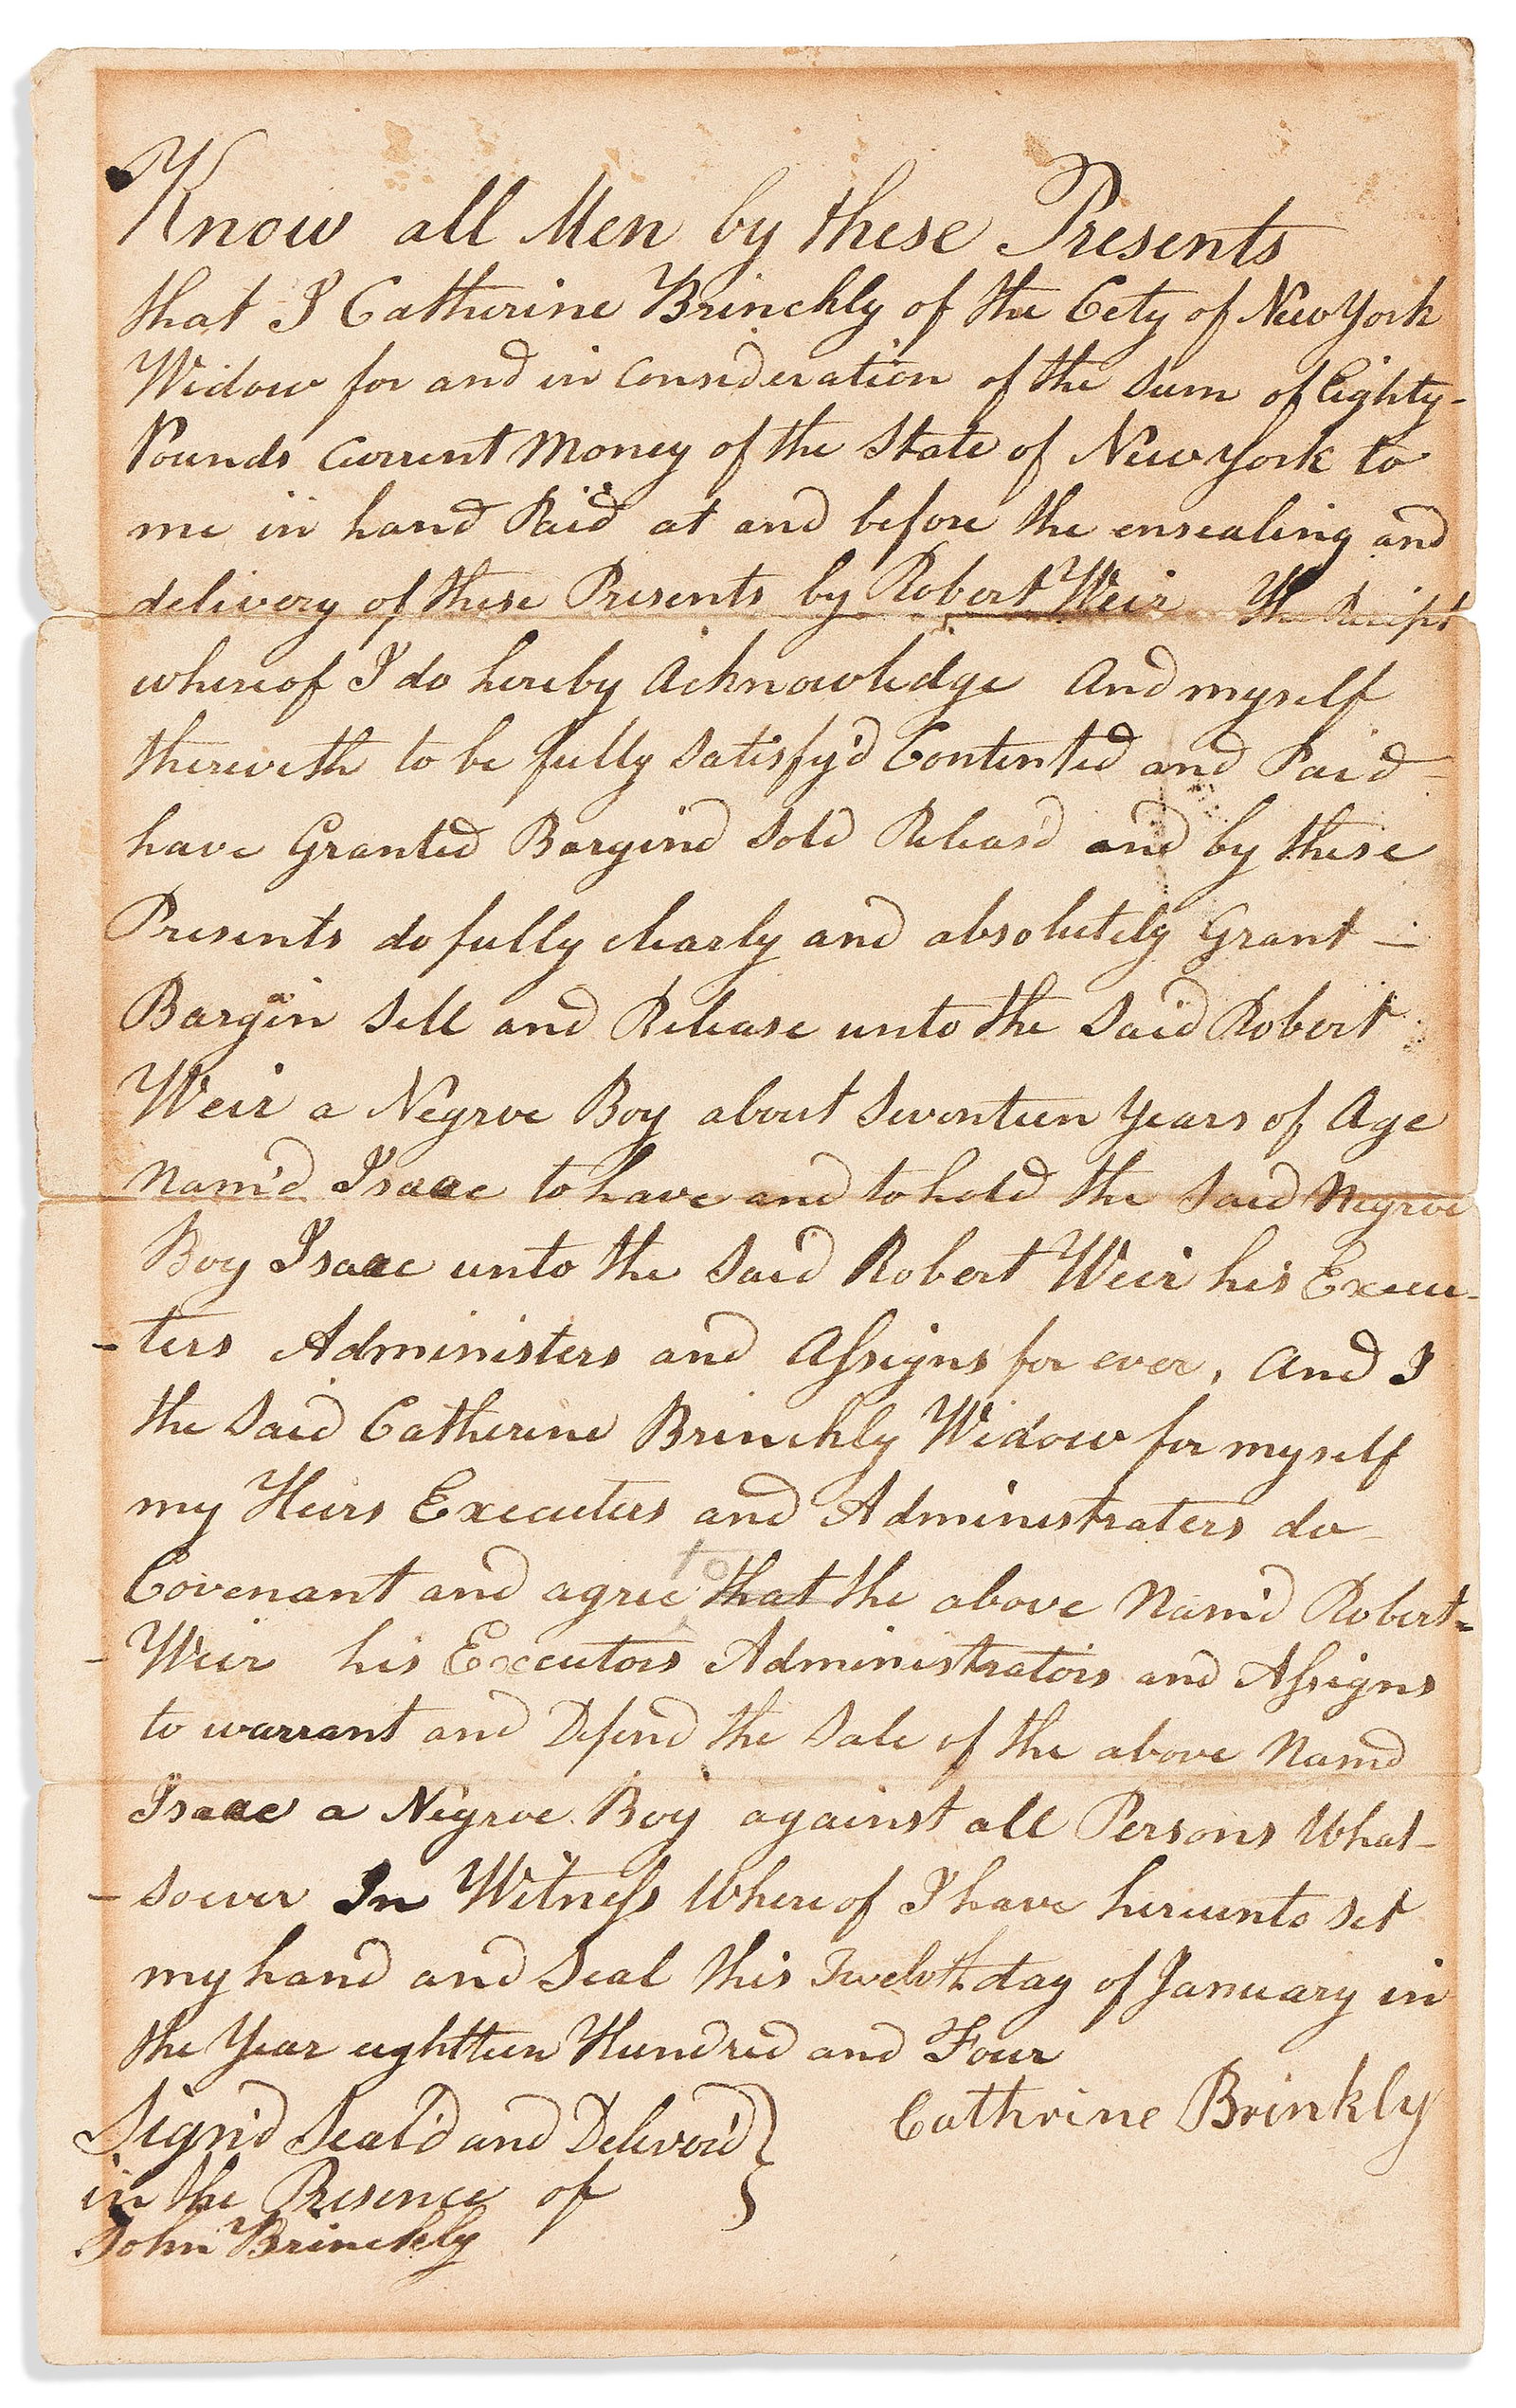 Know all Men by these Presents
that I Catherine Brinckly of the Cety of New York
Widow for and in Consideration of the Sum of Eighty-
Pounds Current Money of the State of New York to
me in hand Paid at and before the ensealing and
delivery of these Presents by Robert Weir The Reciept
whereof I do hereby Acknowledge And myself
therewith to be fully Satisfy'd Contented and Paid
have Granted Bargind Sold Releasd and by these
Presents do fully clearly and absolutely Grant —
Bargain Sell and Release unto the Said Robert
Weir a Negroe Boy about Seventeen Years of Age
Nam'd Isaac to have and to hold the Said Negroe
Boy Isaac unto the Said Robert Weir his Execu-
-ters Administers and Assigns for ever, And I
the Said Catherine Brinckly Widow for myself
my Heirs Executers and Administraters do
Covenant and agree to that the above Nam'd Robert-
- Weir his Executors Administrators and Assigns
to warrant and Defend the Sale of the above Namd
Isaac a Negroe Boy against all Persons What-
-soever In Witness Whereof I have hereunto Set
my hand and Seal this Twelvth day of January in
the Year eightteen Hundred and Four
Cathrine Brinkly
Sign'd Seal'd and Deliver'd
in the Presence of
John Brinckly